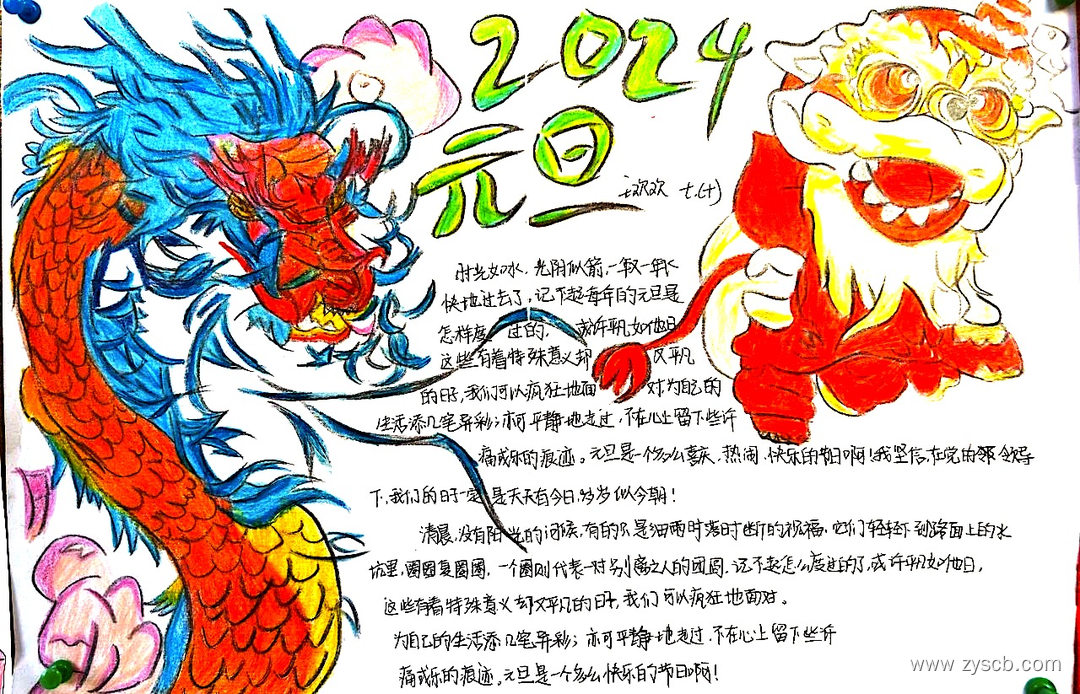 2024
元旦
王欢欢 七.(十)
时光如水，光阴似箭，一年又一年
快地过去了，记不起每年的元旦是
怎样度过的，或许平凡如他日
这些有着特殊意义却又平凡
的日子，我们可以疯狂地面对为自己的
生活添几笔异彩；亦可平静地走过，不在心上留下些许
痛或乐的痕迹。元旦是一个多么喜庆、热闹、快乐的节日啊！我坚信在党的领导
下，我们的日子一定是天天有今日，岁岁似今朝！
清晨，没有阳光的问候，有的只是细雨时落时断的祝福，它们轻轻下到路面上的水
坑里，圈圈复圈圈，一个圈则代表一对别离之人的团圆，记不起怎么度过的了，或许平凡如他日，
这些有着特殊意义却又平凡的日子，我们可以疯狂地面对。
为自己的生活添几笔异彩；亦可平静地走过，不在心上留下些许
痛或乐的痕迹。元旦是一个多么快乐的节日啊！
www.zyscb.com